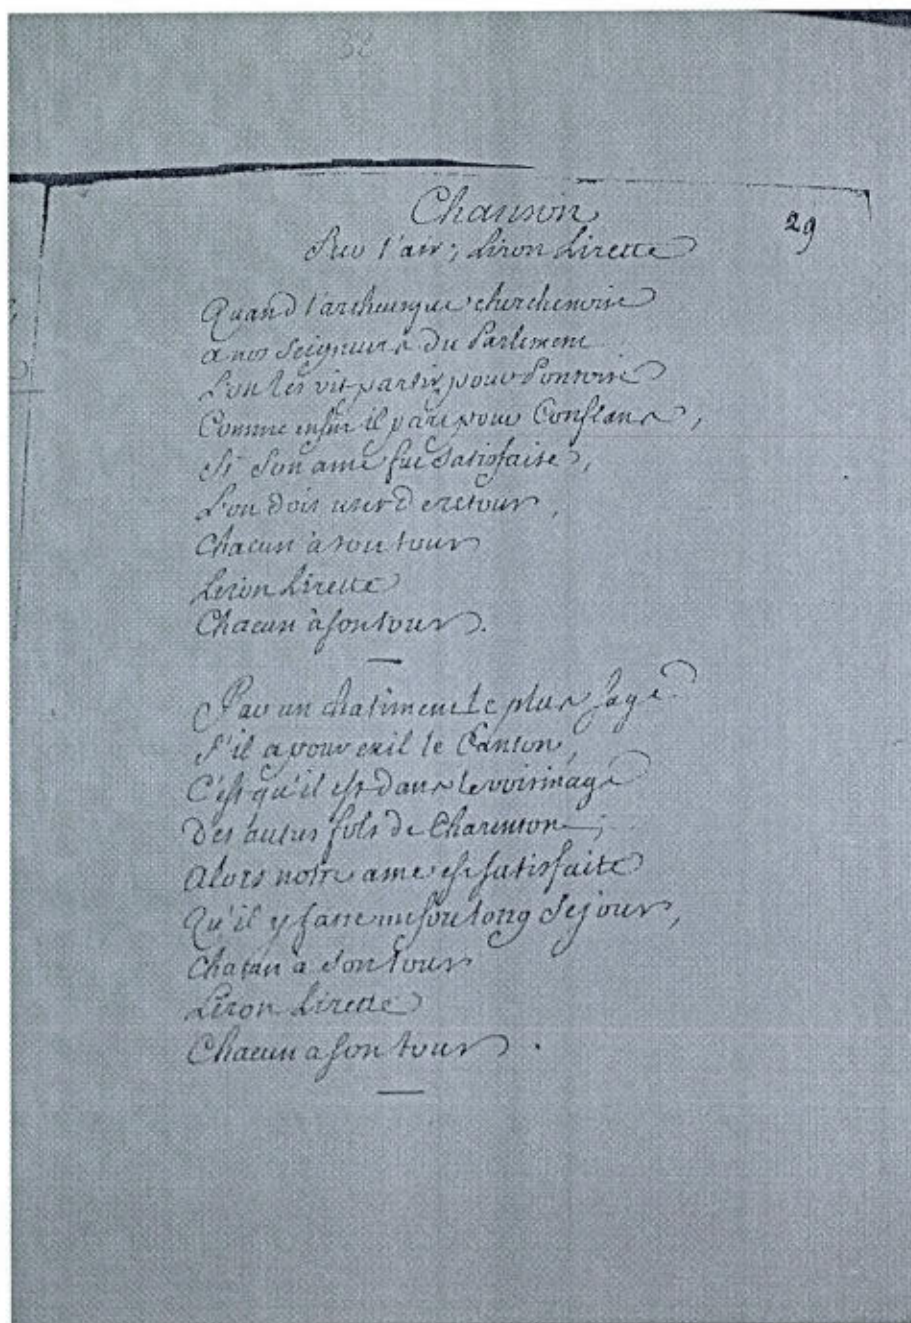 32
29
Chanson
Sur l'air; Liron Lirette
Quand l'archeuesque cherche noise
a nos Seigneurs du Parlement
L'on les vit partir pour Pontoise
Comme enfin il part pour Conflans,
Si son ame fut satisfaite,
L'on doit user de retour,
Chacun à son tour
Leron Lirette
Chacun à son tour.
Par un chatiment le plus sage
S'il a pour exil le Canton,
C'est qu'il est dans le voisinage
Des autres fols de Charenton;
Alors notre ame est satisfaite
Qu'il y fasse un long Sejour,
Chacun à son tour
Liron Lirette
Chacun a son tour.